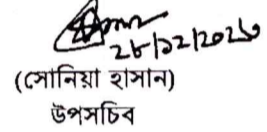 ২৮/১২/২০২৩
(সোনিয়া হাসান)
উপসচিব